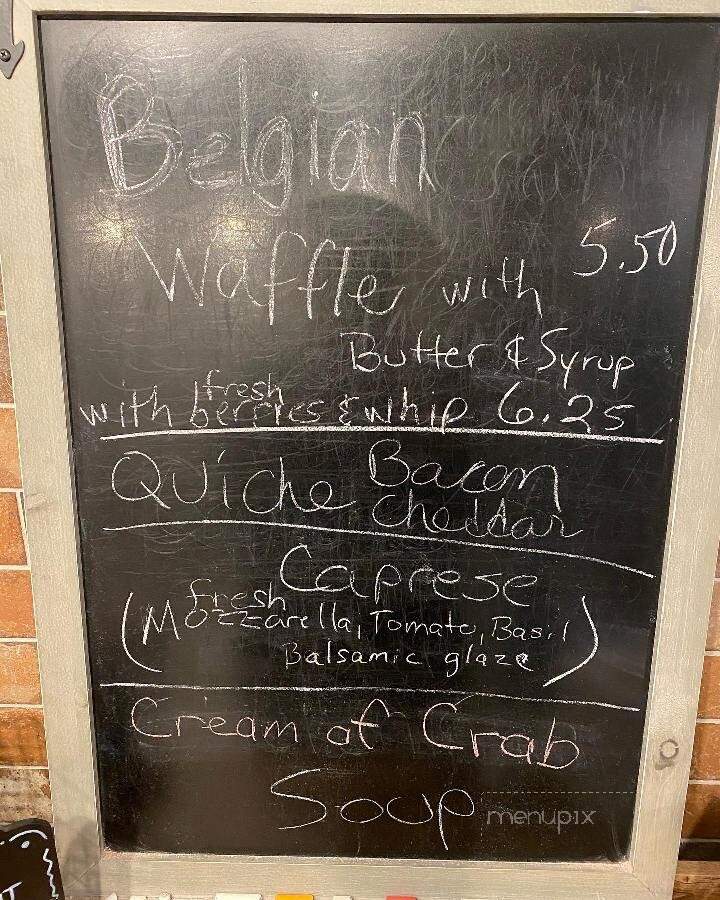 Belgian
Waffle with 5.50
Butter & Syrup
with fresh berries & whip 6.25
Quiche Bacon
Cheddar
Caprese
(fresh Mozzarella, Tomato, Basil
Balsamic glaze)
Cream of Crab
Soup
menupix